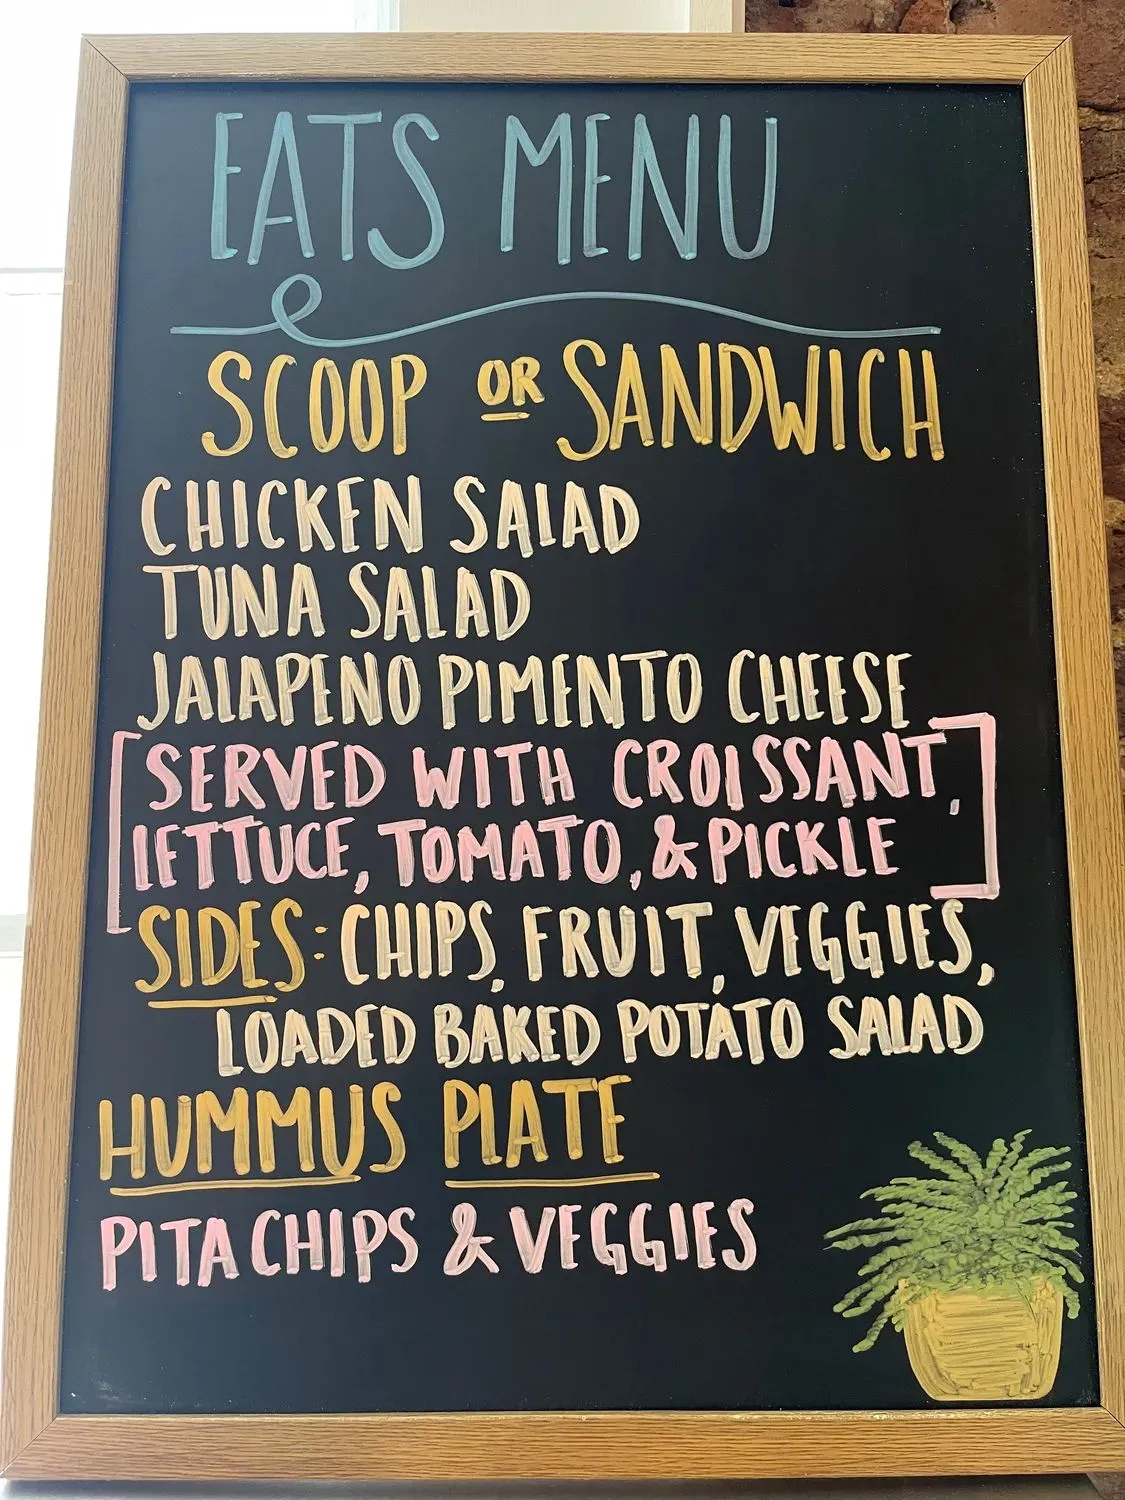 EATS MENU
SCOOP OR SANDWICH
CHICKEN SALAD
TUNA SALAD
JALAPENO PIMENTO CHEESE
[SERVED WITH CROISSANT,
LETTUCE, TOMATO, & PICKLE]
SIDES: CHIPS, FRUIT, VEGGIES,
LOADED BAKED POTATO SALAD
HUMMUS PLATE
PITA CHIPS & VEGGIES